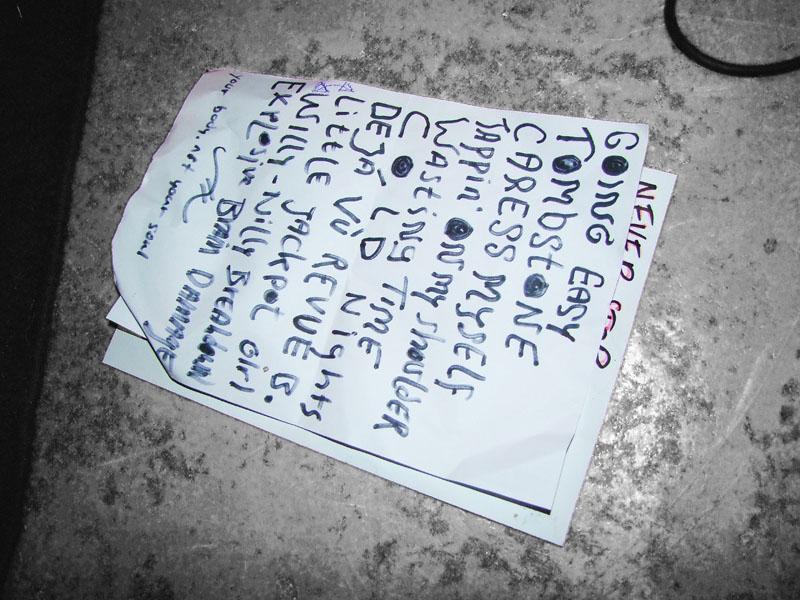 NEVER STOP
GOING EASY
TOMbSTONE
CARESS MYSELF
TAPPIN' ON my ShoulDER
WASTing TimE
COLD Nights
DEJA VU REVUE B.
LiTTLE JACKPOT Girl
WiLLY-NiLLY BREAKdown
EXPLOSiVE BRAin DAmmage
your body, not your soul